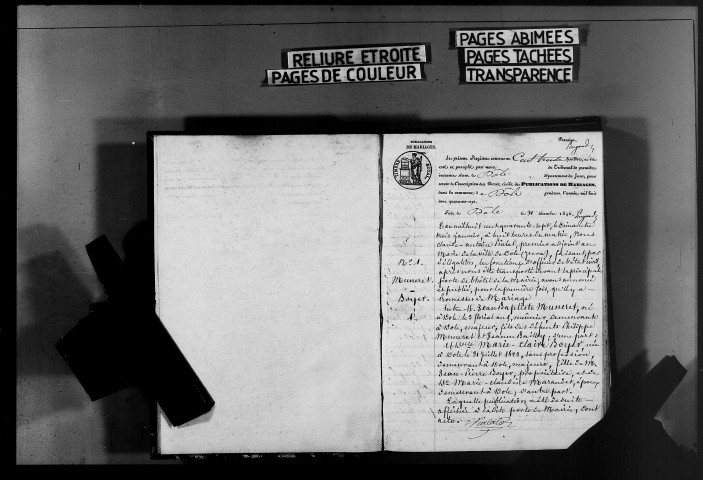 RELIURE ETROITE
PAGES DE COULEUR
PAGES ABIMEES
PAGES TACHEES
TRANSPARENCE
PUBLICATIONS
DE MARIAGES.
Le présent Registre contenant Cent trente feuillets, a été
coté et paraphé par nous, du Tribunal de première
instance séant à Dole Département du Jura, pour
servir à l'inscription des Actes civils de PUBLICATIONS DE MARIAGES,
dans la commune d Dole pendant l'année mil huit
cent quarante-sept.
Fait à Dole le 30 1846.
L'an mil huit cent quarante-sept, le Dimanche
trois janvier, à huit heures du matin, Nous
Claude premier adjoint au
Maire de la ville de Dole (Jura), faisant, par
délégation, les fonctions d'officier de l'état civil,
après nous être transporté devant la principale
porte de l'hôtel de la Mairie, avons annoncé
et publié, pour la première fois, qu'il y a
Promesses de Mariage
N° 1.
Muneret.
-
Boyer.
1°.
Entre M. Jean Baptiste Muneret, né
à Dole le 2 floréal an 9, meunier, demeurant
à Dole, majeur, fils des défunts Philippe
Muneret et Jeanne Bailly, d'une part;
Et Dlle Marie-Claire Boyer née
à Dole le 31 juillet 1823, sans profession,
demeurant à Dole, majeure, fille de M.
Jean-Pierre Boyer, propriétaire, et de
De Marie-Claudine époux
demeurant à Dole, d'autre part.
Laquelle publication a été de suite
affichée à la dite porte de Mairie, Dont
acte.